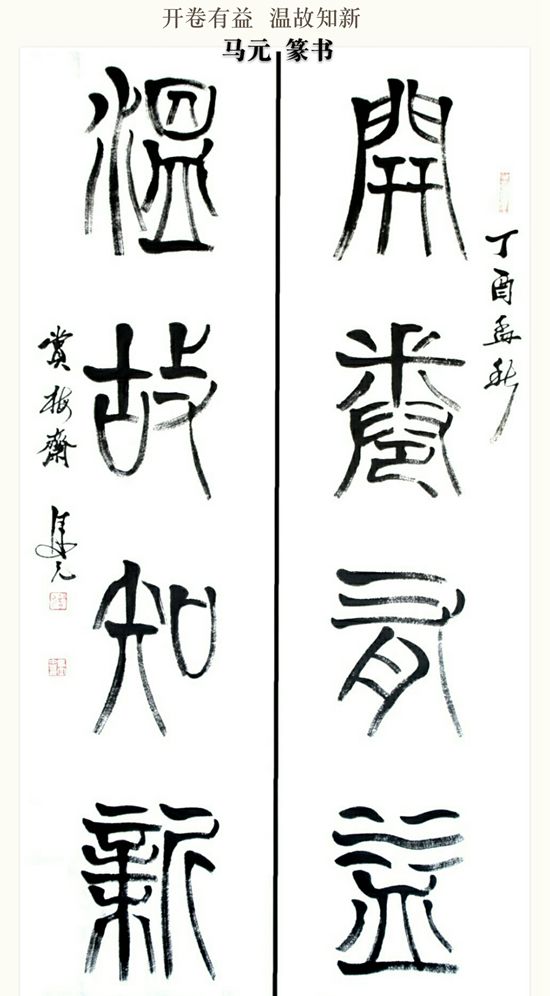 开卷有益 温故知新
马元 篆书
開卷有益
丁酉孟秋
溫故知新
賞梅齋 馬元